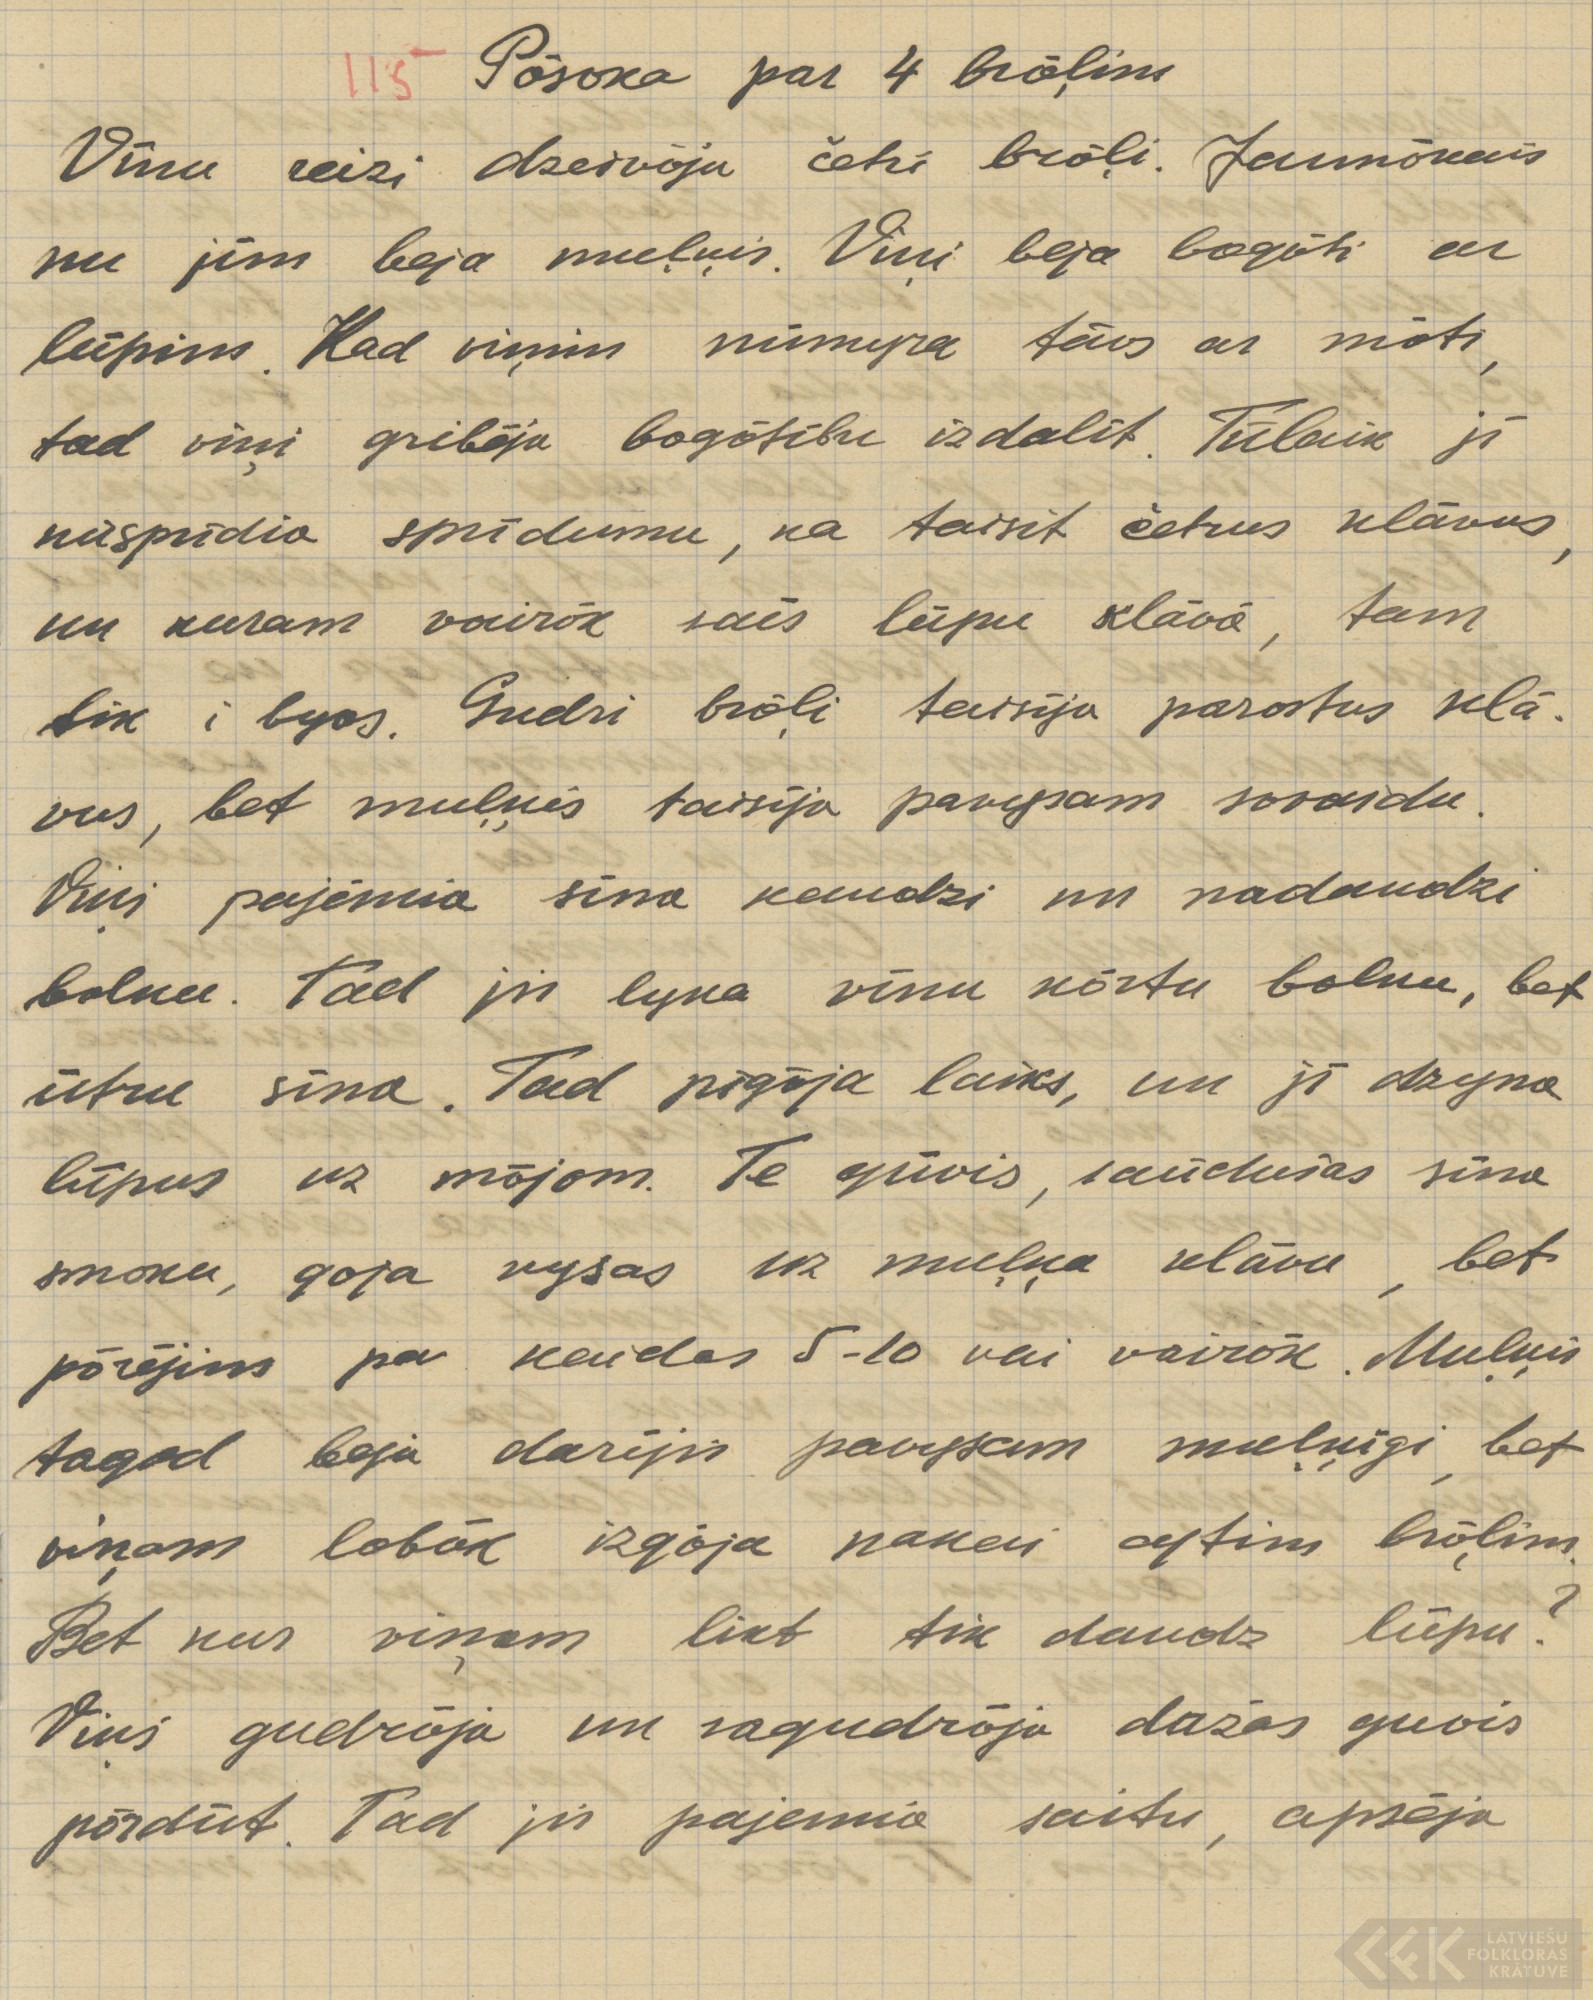 115 Pōsoka par 4 brōļim
Vīnu reizi dzeivōja četri brōļi. Jaunōkais
nu jim beja muļķis. Viņi beja bogōti ar
lūpim. Kad viņim nūmyra tāvs ar mōti,
tad viņi gribēja bogōtību izdalīt. Tūlaik jī
nūsprīdia sprīdumu, ka taisīt četrus klāvus,
un kuram vairōk saīs lūpu klāvā, tam
tik i byus. Gudri brōļi taisīja parostus klā-
vus, bet muļķis taisīja pavysam sovaidu.
Viņš pajēmia sīna kaudzi un nadaudzi
bolku. Tad jis lyka vīnu kōrtu bolku, bet
ūtru sīna. Tad pīgōja laiks, un jī dzyna
lūpus uz mōjom. Te gūvis, saūdušas sīna
smoku, goja vysas uz muļķa klāvu, bet
pōrējim pa kaidas 5-10 vai vairōk. Muļķis
tagad beja darījis pavysam muļķīgi, bet
viņam lobōk izgōja nakai cytim brōļim.
Bet kur viņam likt tik daudz lūpu?
Viņš gudrōja un sagudrōja dažas guvis
pōrdūt. Tad jis pajemia saitu, apsēja
LATVIEŠU
FOLKLORAS
KRĀTUVE